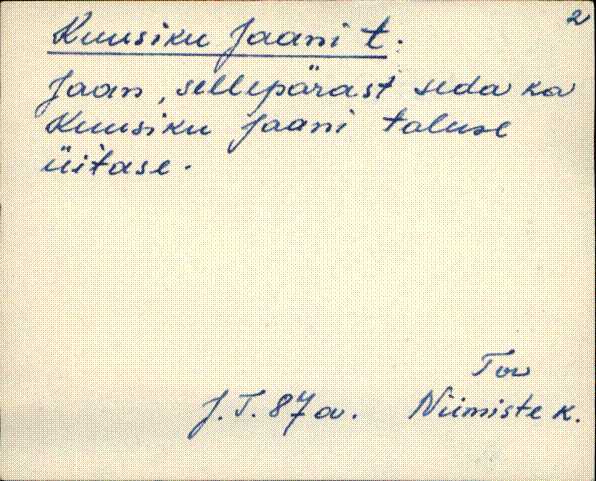 2
Kuusiku Jaani t.
Jaan, sellepärast seda ka
Kuusiku Jaani taluse
üitase.
Tov
J.T. 87a. Niimiste k.